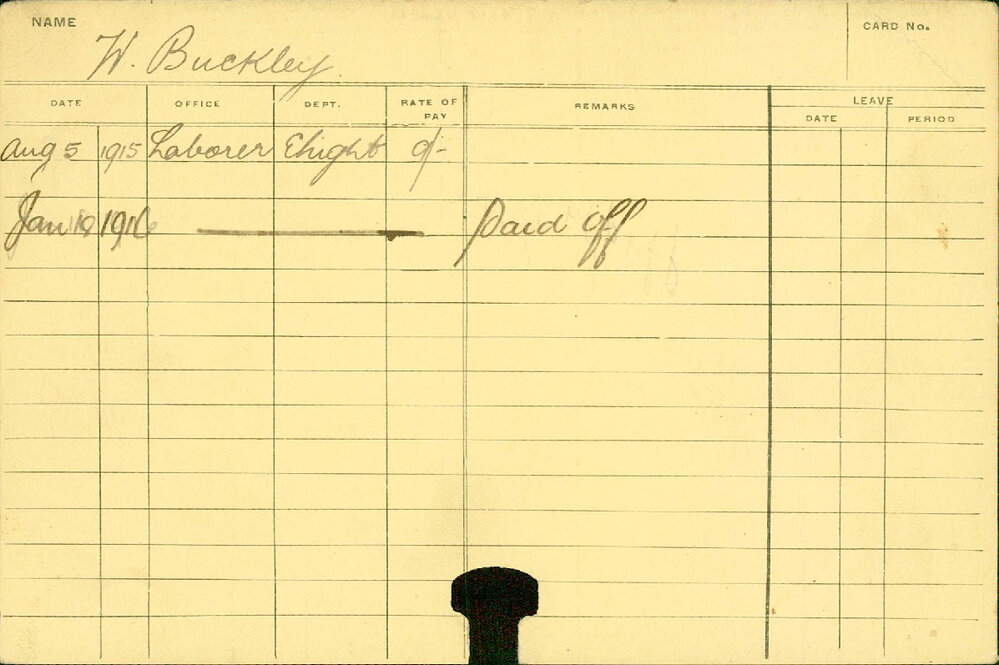 NAME W. Buckley. CARD No.
DATE OFFICE DEPT. RATE OF PAY REMARKS LEAVE
DATE PERIOD
Aug 5 1915 Laborer Elight 9/-
Jan 19 1916 Paid off